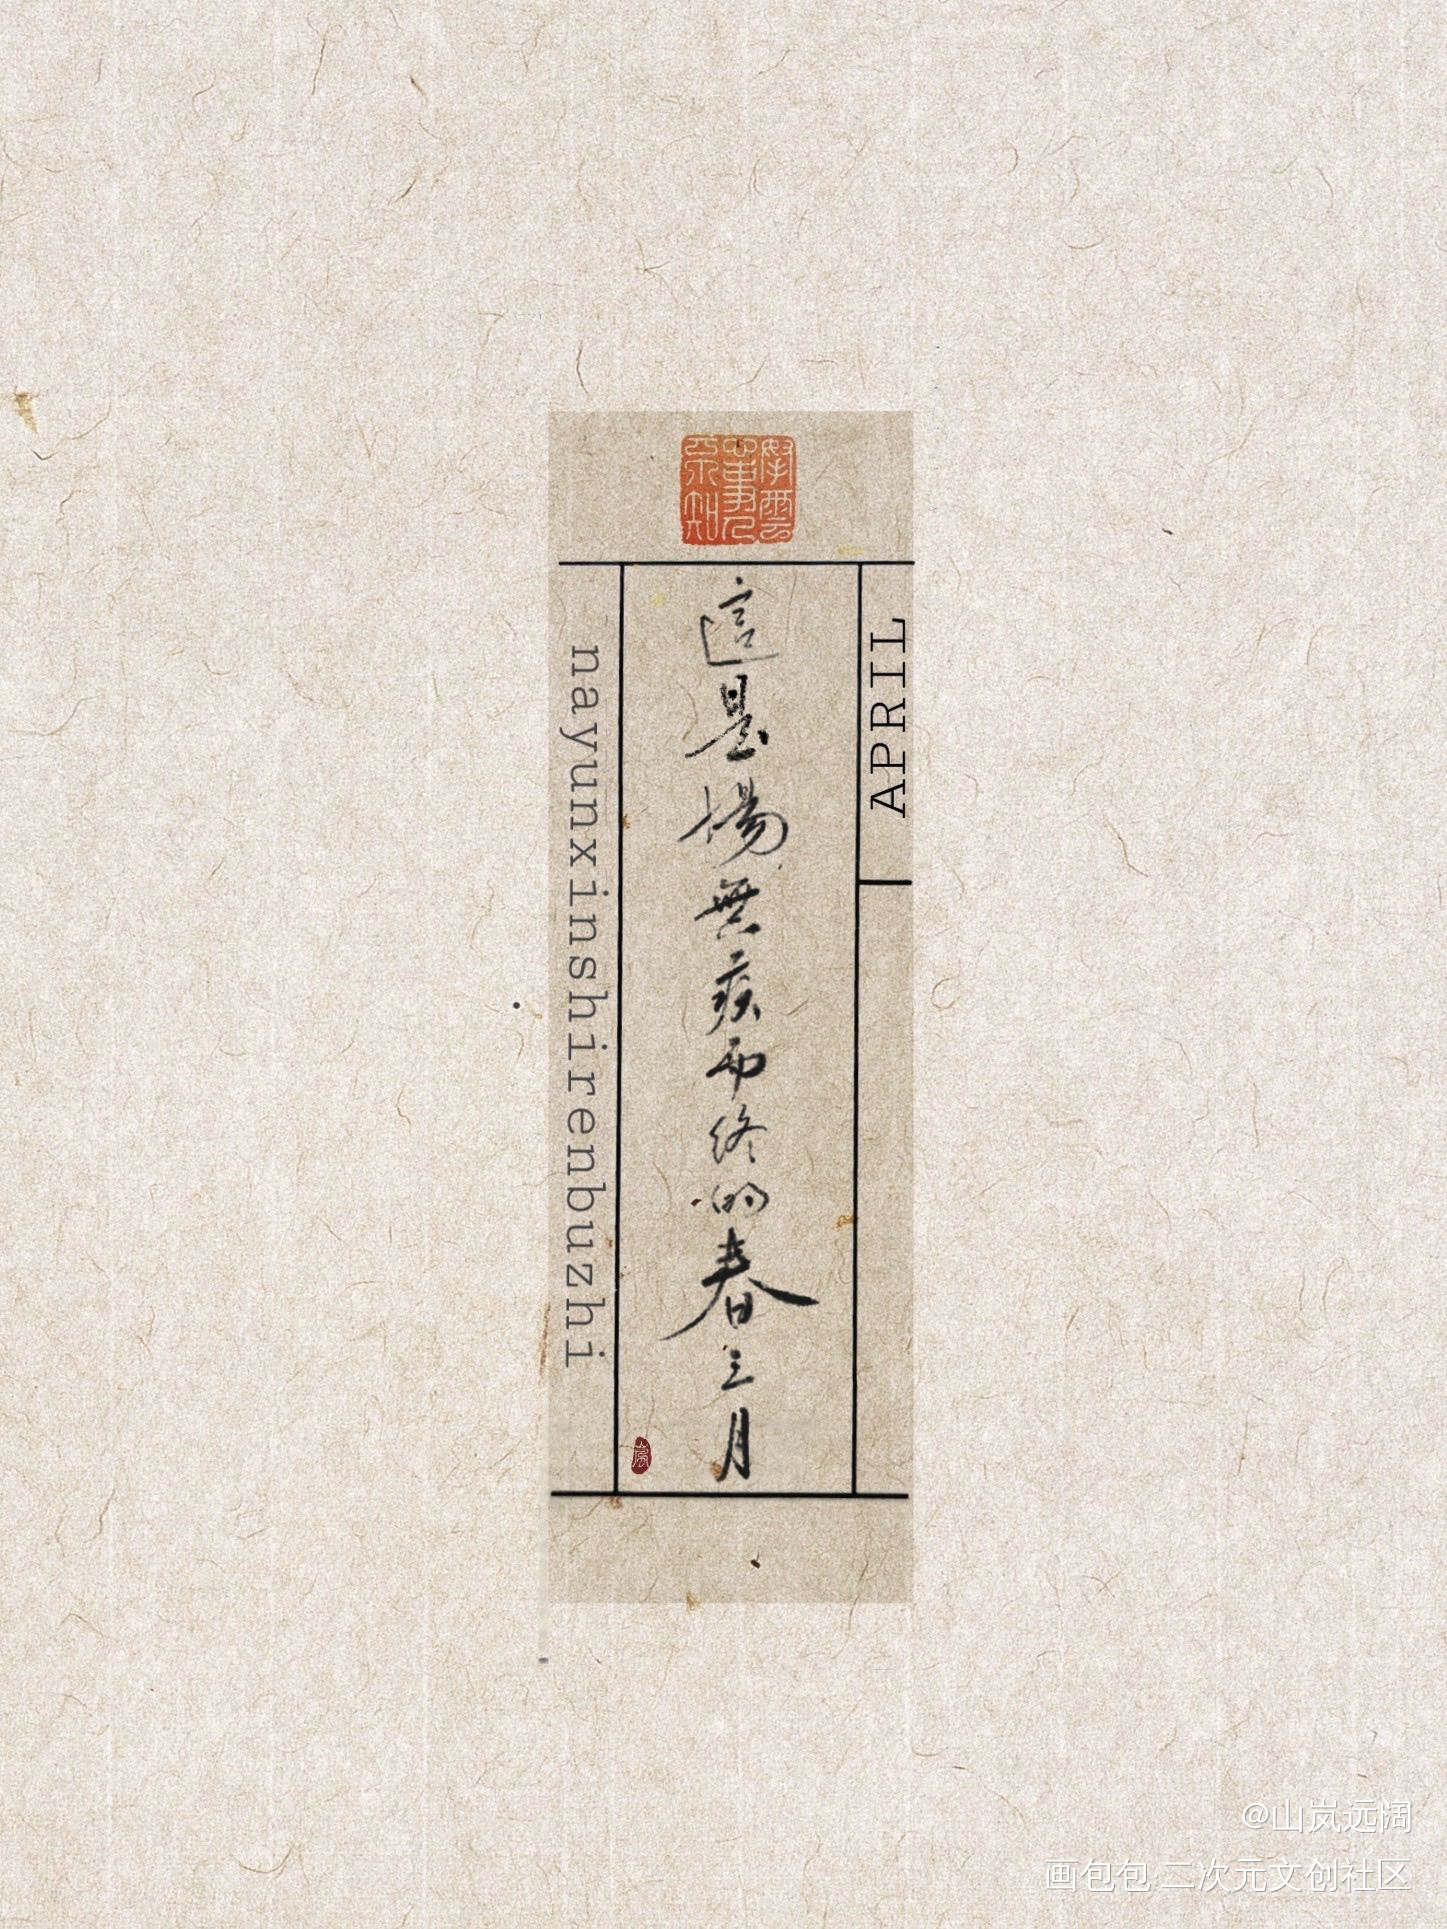 拏雲心事人不知
APRIL
這是場無疾而终的春三月
nayunxinshirenbuzhi
@山岚远阔
画包包·二次元文创社区